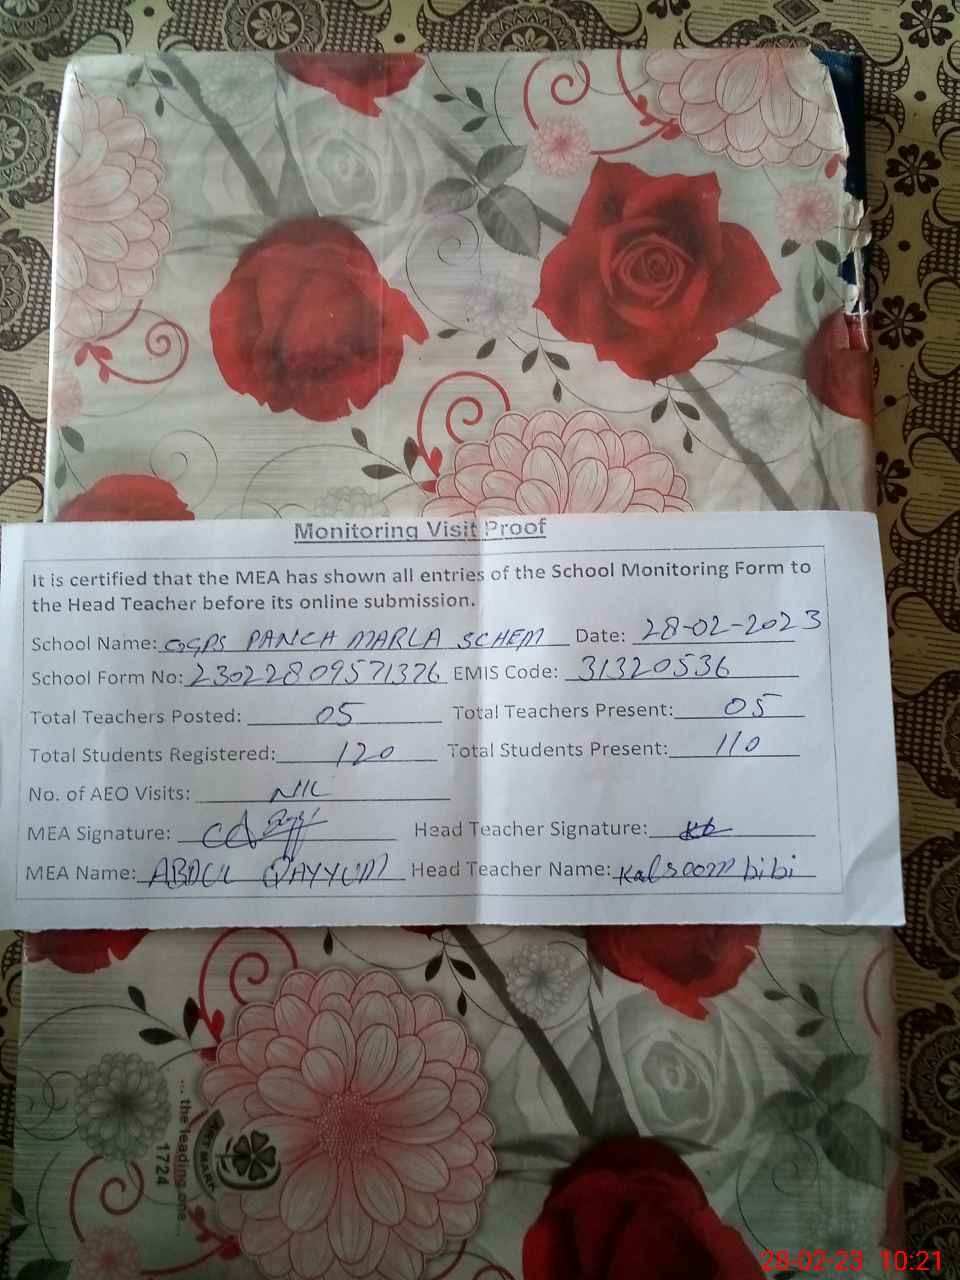 Monitoring Visit Proof
It is certified that the MEA has shown all entries of the School Monitoring Form to
the Head Teacher before its online submission.
School Name: GGPS PANCH MARLA SCHEM Date: 28-02-2023
School Form No: 23022809571326 EMIS Code: 31320536
Total Teachers Posted: 05 Total Teachers Present: 05
Total Students Registered: 120 Total Students Present: 110
No. of AEO Visits: NIL
MEA Signature: Head Teacher Signature: KB
MEA Name: ABDUL QAYYUM Head Teacher Name: Kalsoom bibi
... the leading one...
1724
ART MARK
28-02-23 10:21